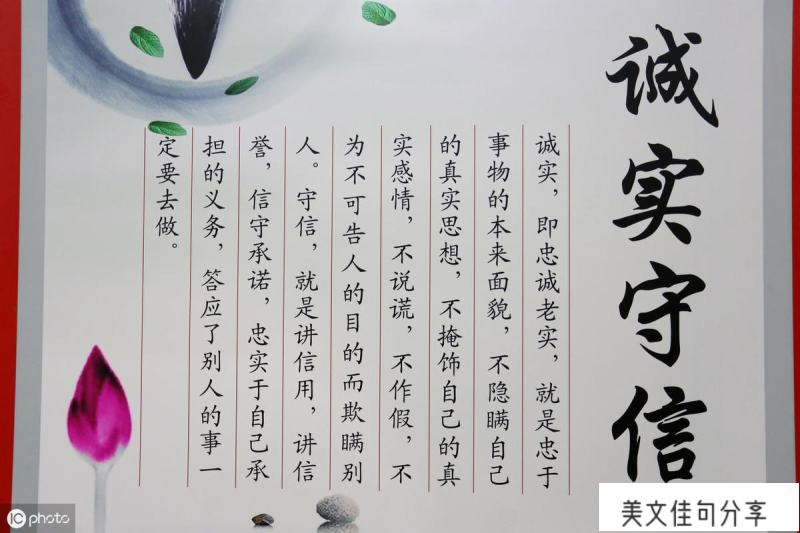 诚实守信
诚实，即忠诚老实，就是忠于
事物的本来面貌，不隐瞒自己
的真实思想，不掩饰自己的真
实感情，不说谎，不作假，不
为不可告人的目的而欺瞒别
人。守信，就是讲信用，讲信
誉，信守承诺，忠实于自己承
担的义务，答应了别人的事一
定要去做。
iC photo
美文佳句分享